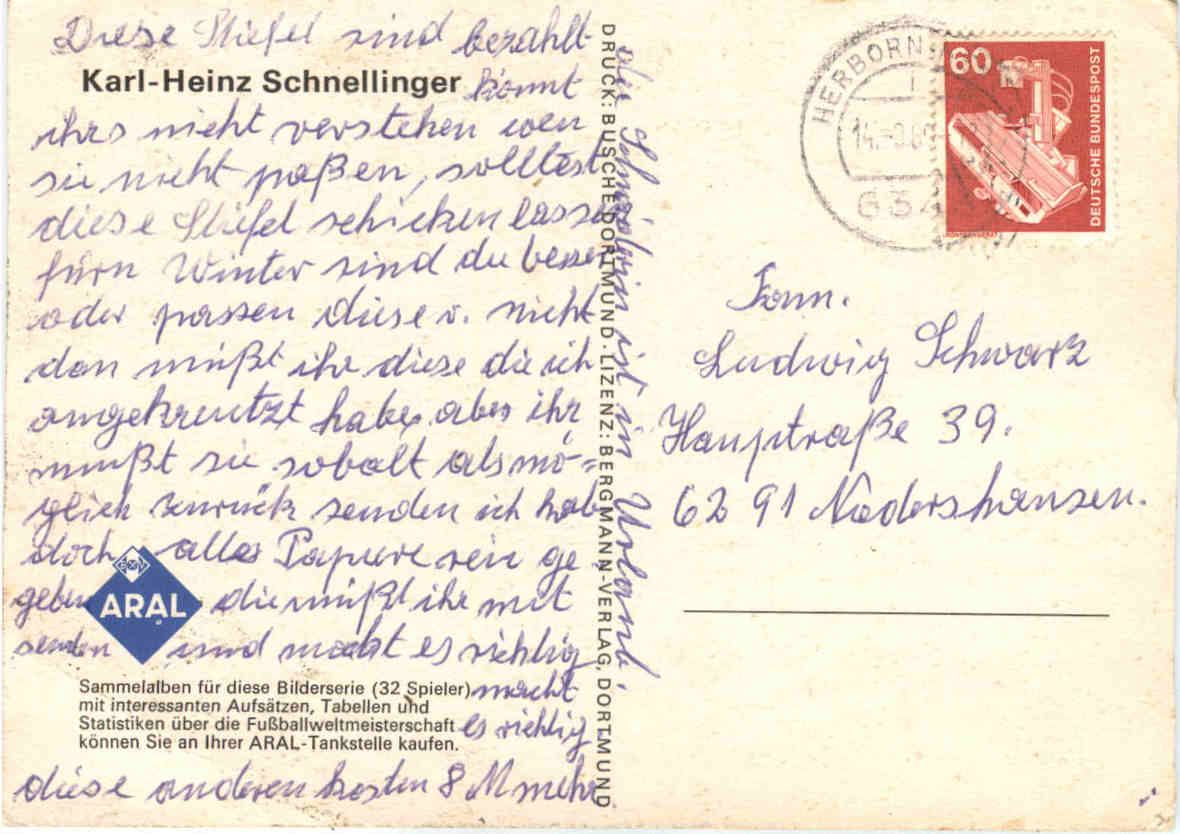 Diese Stiefel sind bezahlt
Karl-Heinz Schnellinger
könnt
ihrs nicht verstehen wen
sie nicht paßen, solltest
diese Stiefel schicken lassen
fürn Winter sind die besser
oder passen diese v. nicht
dan müßt ihr diese die ich
angekreutzt habe, aber ihr
müßt sie sobalt als mö=
glich zurück senden ich hab
doch alles Papiere rein ge
geben die müßt ihr mit
senden und macht es richtig
macht
es richtig
diese anderen kosten 8 M mehr
ARAL
Sammelalben für diese Bilderserie (32 Spieler)
mit interessanten Aufsätzen, Tabellen und
Statistiken über die Fußballweltmeisterschaft
können Sie an Ihrer ARAL-Tankstelle kaufen.
DRUCK: BUSCHE DORTMUND · LIZENZ: BERGMANN-VERLAG, DORTMUND
die ist in Urlaub.
HERBORN
14.
634
60
DEUTSCHE BUNDESPOST
Fam.
Ludwig Schwarz
Hauptraße 39.
6291 Nodershausen.